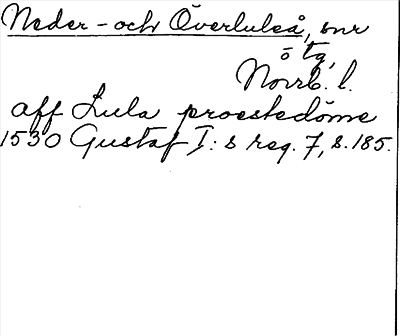 Neder- och Överluleå, snr
o tg,
Norrb. l.
aff Lula proestedöme
1530 Gustaf I:s reg. 7, s. 185.